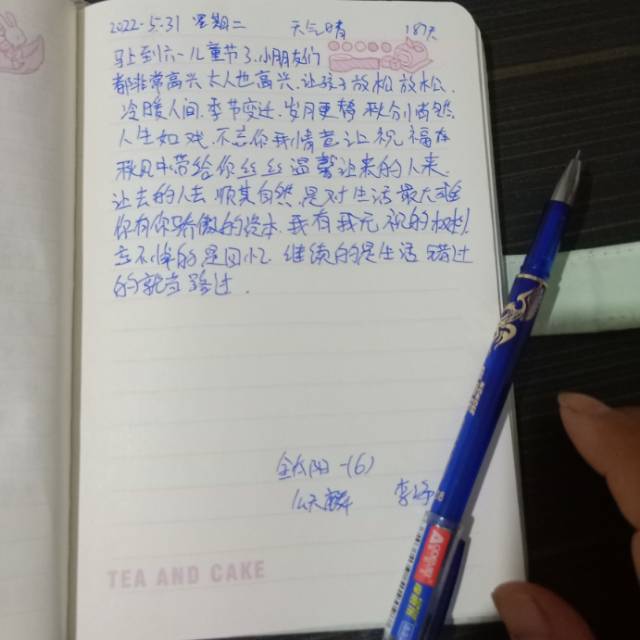 2022.5.31 星期二 天气晴 181天
马上到六一儿童节了.小朋友们
都非常高兴大人也高兴.让孩子放松放松.
冷暖人间.季节变迁.岁月更替 秋分悄然
人生如戏.不忘你我情意让祝福在
秋风中带给你丝丝温馨让来的人来
让去的人去 顺其自然 是对生活最大
你有你骄傲的资本 我有我无视的权利
忘不掉的是回忆 继续的是生活 错过
的就当路过.
(6)
李
TEA AND CAKE